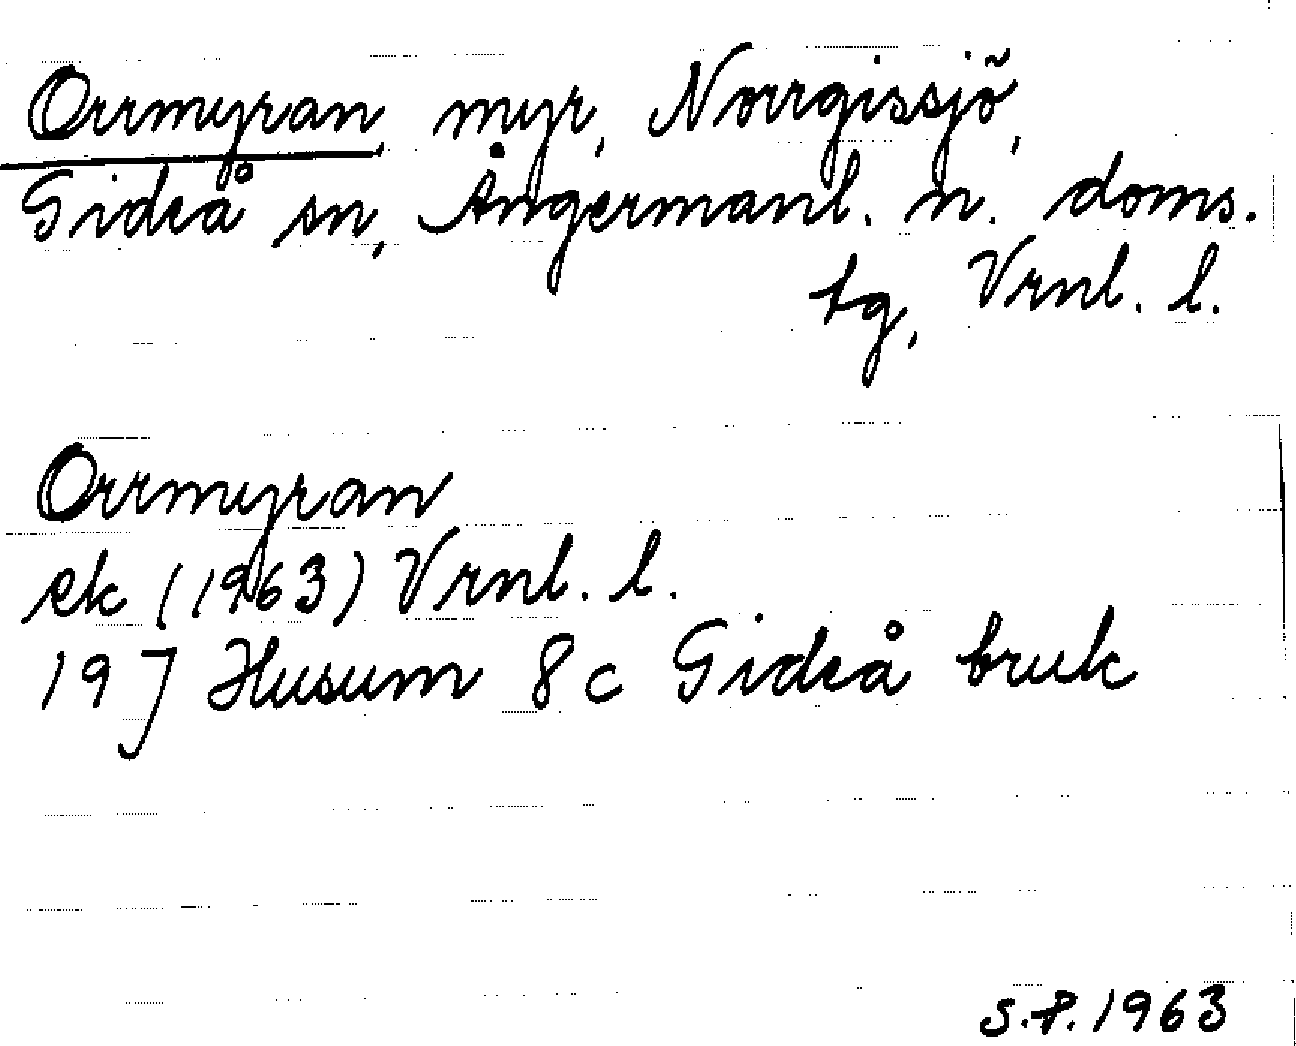 Orrmyran, myr, Norrgissjö,
Gideå sn, Ångermanl. n. doms.
tg, Vrnl. l.
Orrmyran
ek (1963) Vrnl. l.
19 J Husum 8 c Gideå bruk
S.P. 1963